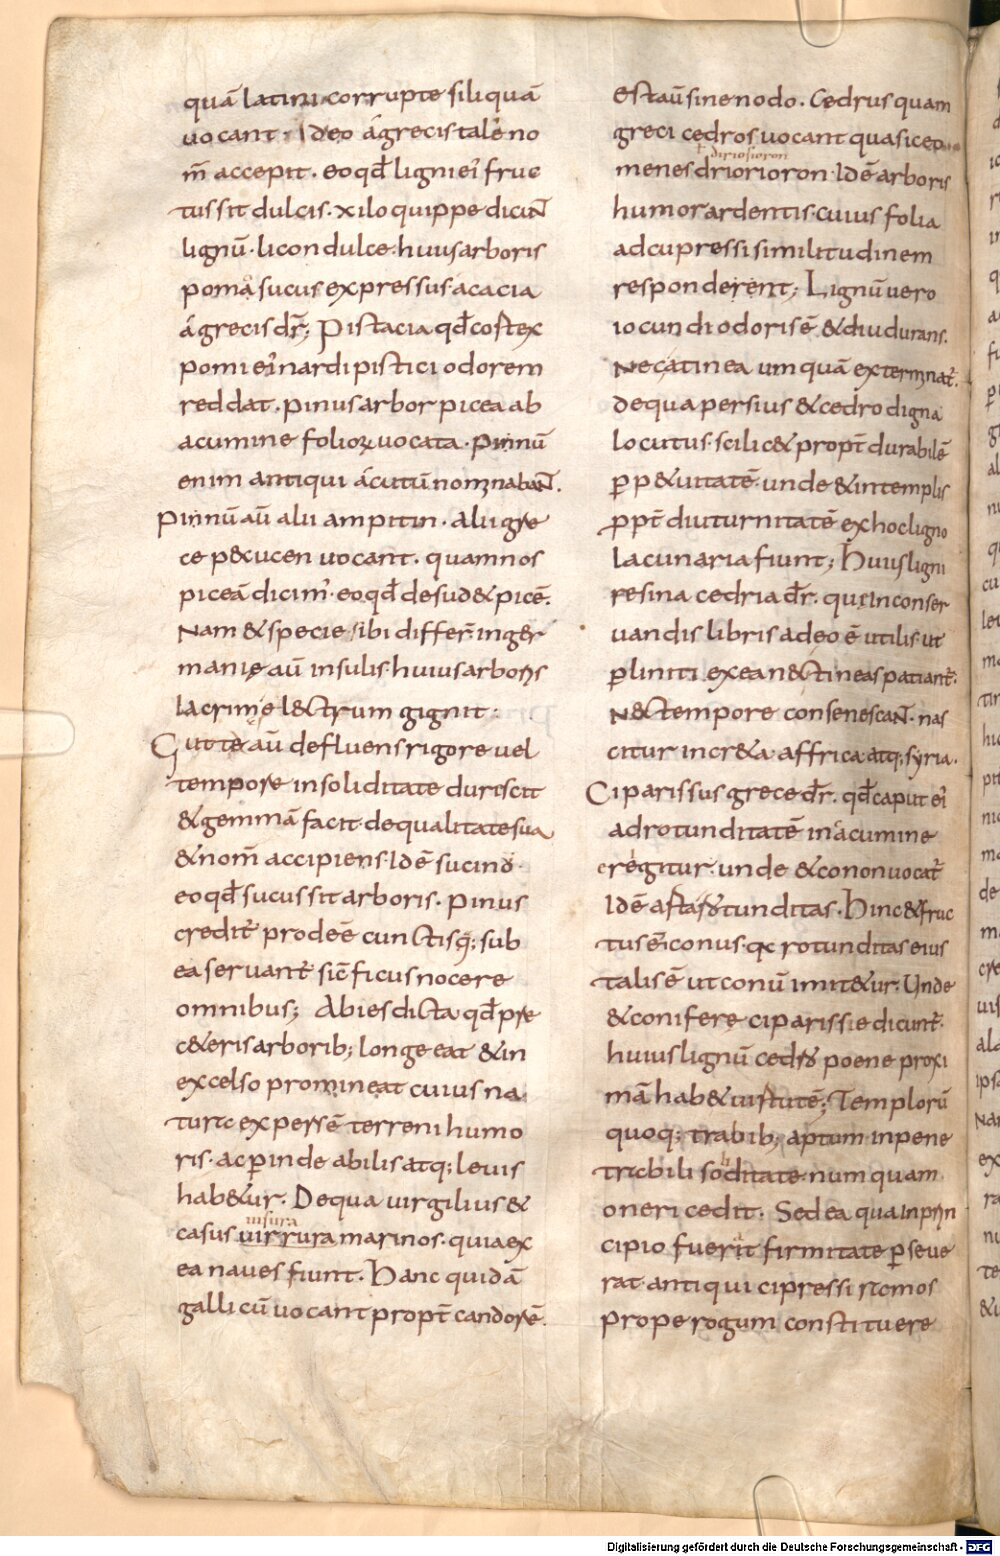 quā latini corrupte siliquā
uocant. Ideo a grecis tale no
m̄ accepit. eo qđ ligni ei' fruc
tus sit dulcis. xilo quippe dicuɴᴛ
lignū. licon dulce. huius arboris
poma sucus expressus acacia
a grecis dr̄; Pistacia qđ cortex
pomi ei' nardi pistici odorem
reddat. pinus arbor picea ab
acumine folioꝝ uocata. pinnū
enim antiqui acutū nominabaɴᴛ.
Pinnū aū alii ampitin. alii gre
ce p&ucen uocant. quam nos
piceā dicim'. eo qđ desud& picē.
Nam & specie sibi differ̄. in ger
manię aū insulis huius arboris
lacrime lectrum gignit.
Guttę aū defluens rigore uel
tempore in soliditate durescit
& gemmā facit. de qualitate sua
& nom̄ accipiens. Idē sucino
eo qđ sucus sit arboris. pinus
credit̄ prodeē cunctisq; sub
ea seruant̄ sic̄ ficus nocere
omnibus; Abies dicta qđ pre
c&eris arborib; longe eat & in
excelso promineat cuius na
ture expers ē terreni humo
ris. ac ꝑinde abilis atq; leuis
hab&ur. De qua uirgilius &
uisura
casus uirrura marinos. quia ex
ea naues fiunt. Hanc quidā
gallicū uocant propt̄ candorē.
est aū sine nodo. Cedrus quam
greci cedros uocant quasi ceo
dirioſioron
menes driorioron. Idē arboris
humor ardentis. cuius folia
ad cupressi similitudinem
responderent; Lignū uero
iocundi odoris ē & diu durans.
Nec a tinea umquā exterminat̄.
de qua persius & cedro digna
locutus. scilic& propt̄ durabilē
ꝑp&uitatē. unde & in templis
ꝓpt̄ diuturnitatē ex hoc ligno
lacunaria fiunt; Huius ligni
resina cedria dr̄. quę in conser
uandis libris adeo ē utilis ut
ꝑliniti ex ea n& tineas patiant̄.
N& tempore consenescaɴᴛ. nas
citur in cr&a affrica atq; syria.
Ciparissus grece dr̄. qđ caput ei'
ad rotunditatē in acumine
eregitur. unde & cono n uocat̄
Idē alta rotunditas. Hinc & fruc
tus ei' conus. qc rotunditas eius
talis ē ut conū imit&ur. Unde
& conifere ciparissie dicunt̄.
huius lignū cedro poene proxi
mā hab& uirtutē; Templorū
quoq; trabib; aptum inpene
trebili soditate numquam
oneri cedit. Sed ea qua in prin
cipio fuerit firmitate ꝑseue
rat. antiqui cipressi romos
prope rogum constituere
Digitalisierung gefördert durch die Deutsche Forschungsgemeinschaft - DFG